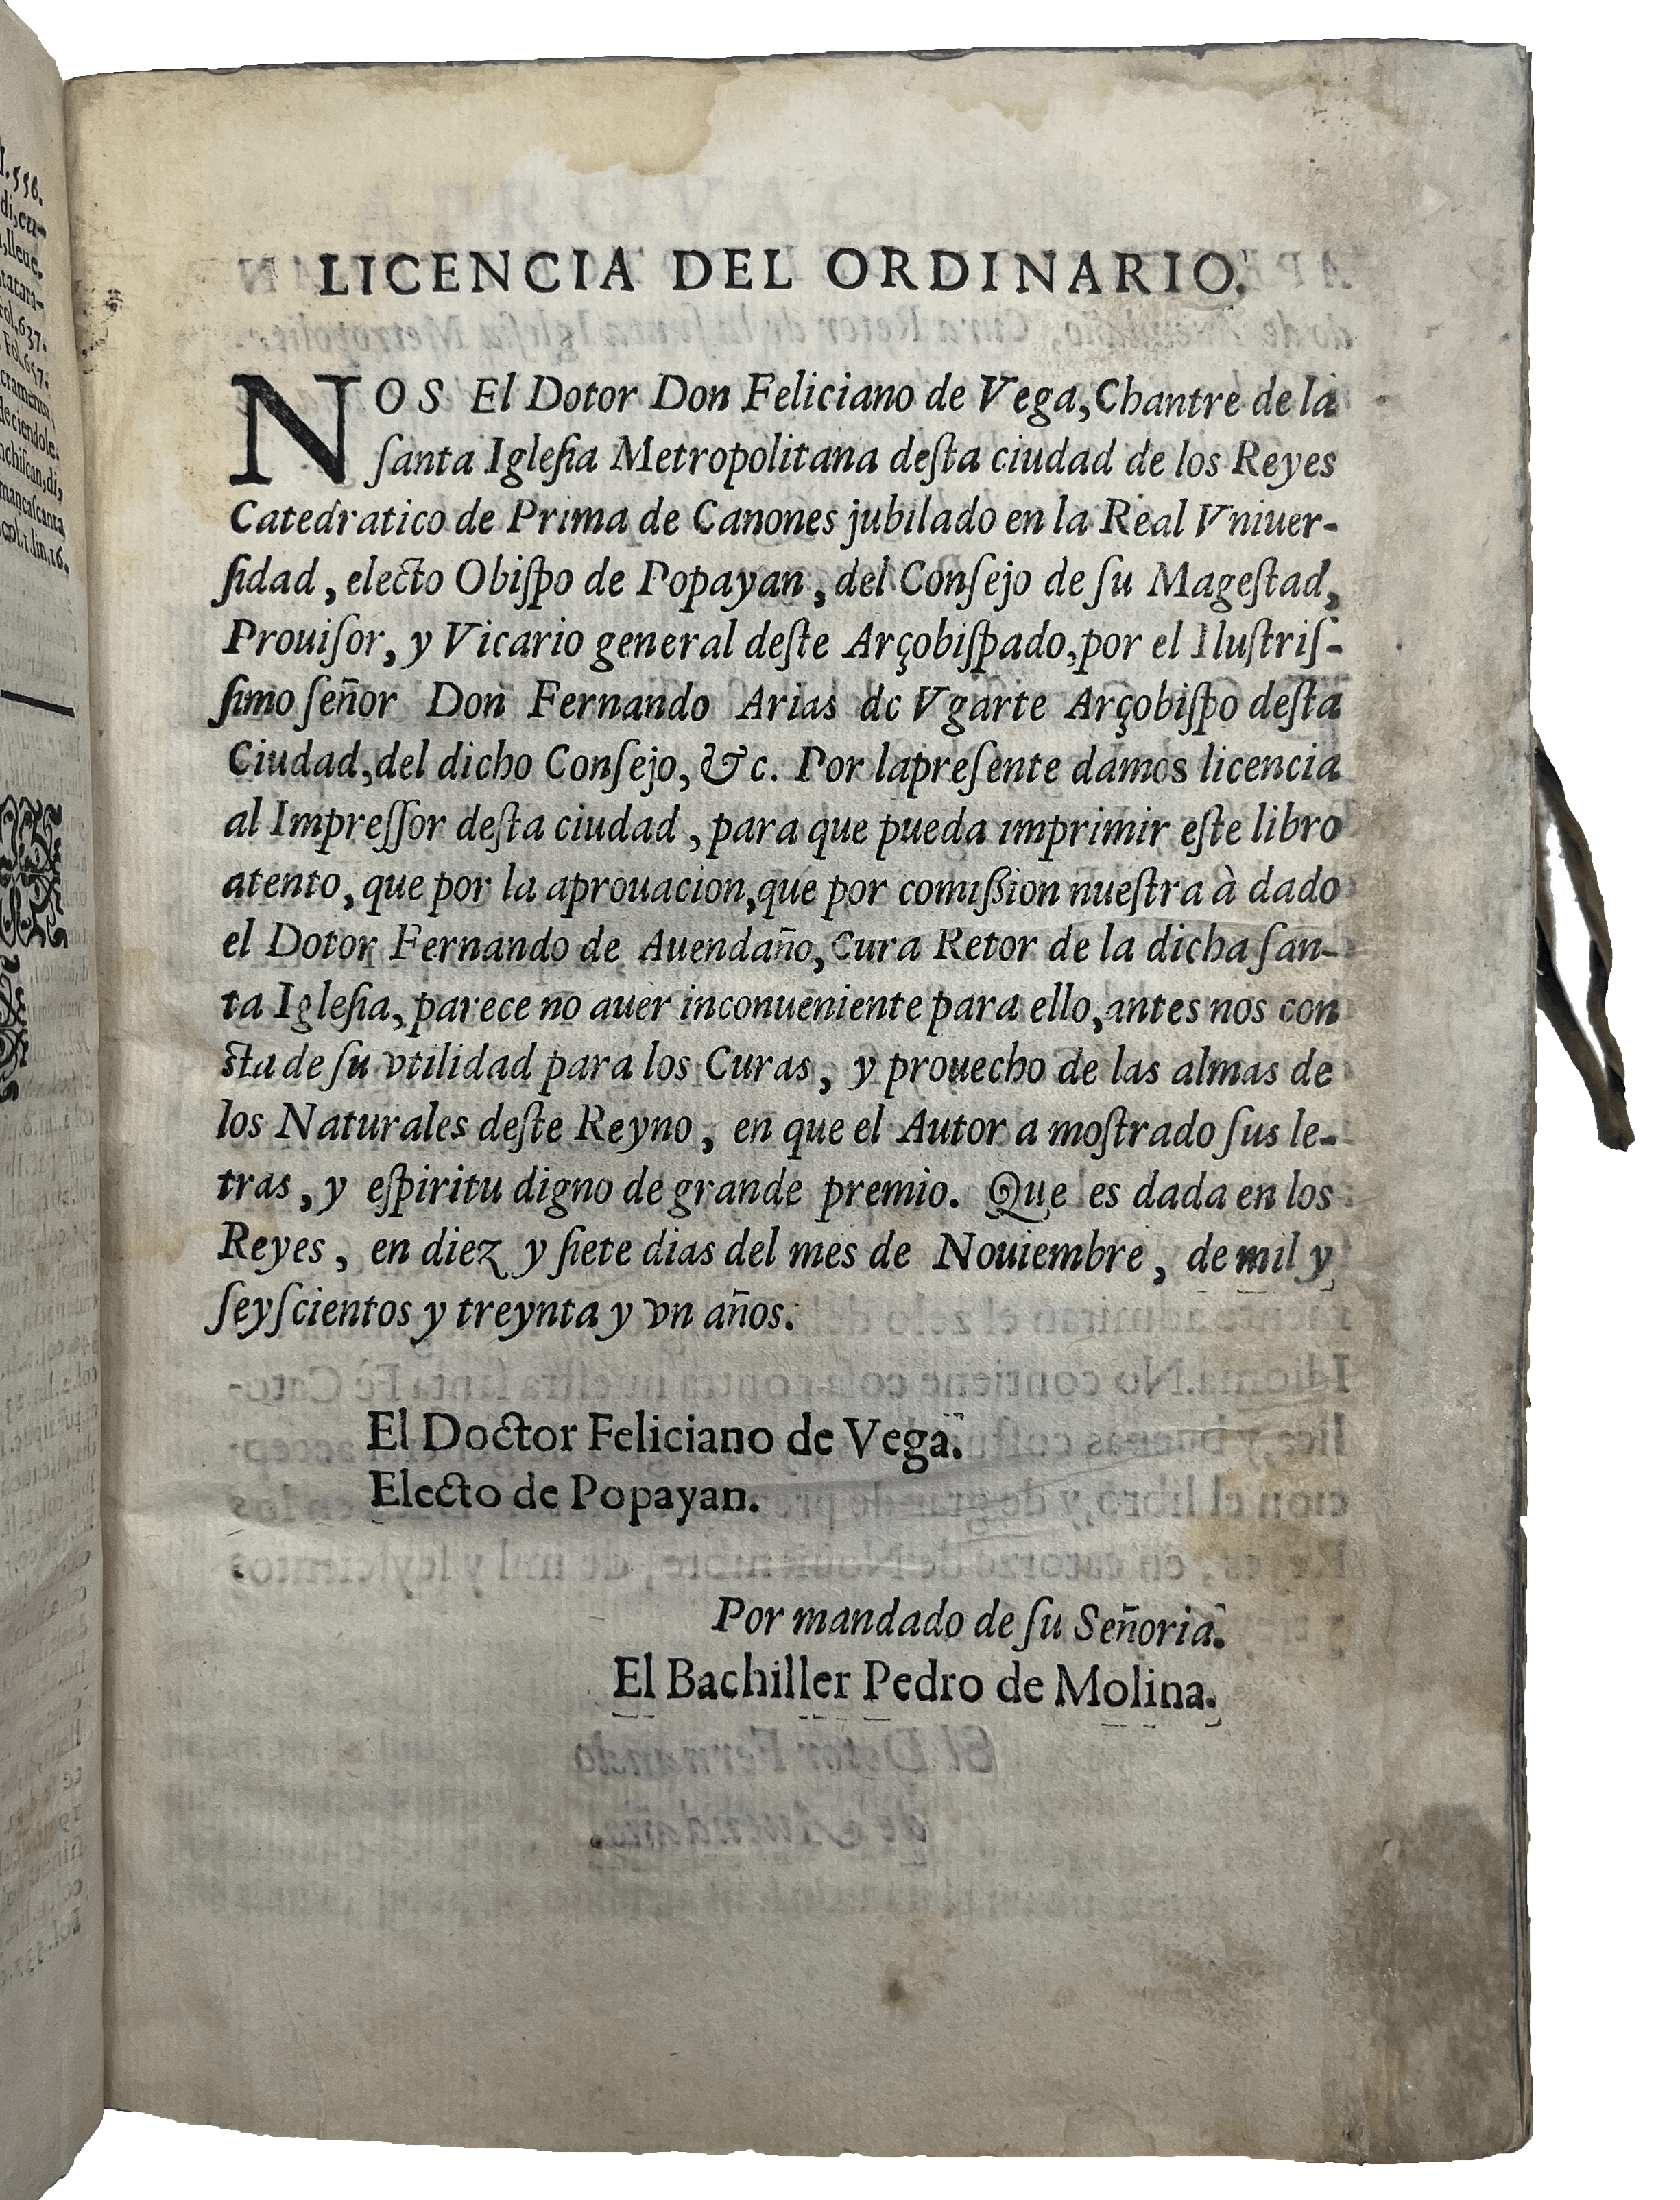 LICENCIA DEL ORDINARIO.
NOS El Dotor Don Feliciano de Vega, Chantre de la
ſanta Igleſia Metropolitana deſta ciudad de los Reyes
Catedratico de Prima de Canones jubilado en la Real Vniuer-
ſidad, electo Obiſpo de Popayan, del Conſejo de ſu Mageſtad,
Prouiſor, y Vicario general deſte Arçobiſpado, por el Iluſtriſ-
ſimo ſeñor Don Fernando Arias de Vgarte Arçobiſpo deſta
Ciudad, del dicho Conſejo, &c. Por lapreſente damos licencia
al Impreſſor deſta ciudad, para que pueda imprimir eſte libro
atento, que por la aprouacion, que por comiſsion nueſtra à dado
el Dotor Fernando de Auendaño, Cura Retor de la dicha ſan-
ta Igleſia, parece no auer inconueniente para ello, antes nos con
ſta de ſu vtilidad para los Curas, y prouecho de las almas de
los Naturales deſte Reyno, en que el Autor a moſtrado ſus le-
tras, y eſpiritu digno de grande premio. Que es dada en los
Reyes, en diez y ſiete dias del mes de Nouiembre, de mil y
ſeyſcientos y treynta y vn años.
El Doctor Feliciano de Vega.
Electo de Popayan.
Por mandado de ſu Señoria.
El Bachiller Pedro de Molina.